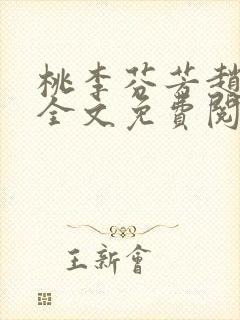 桃李芬芳趙
全文免費閱
王新會